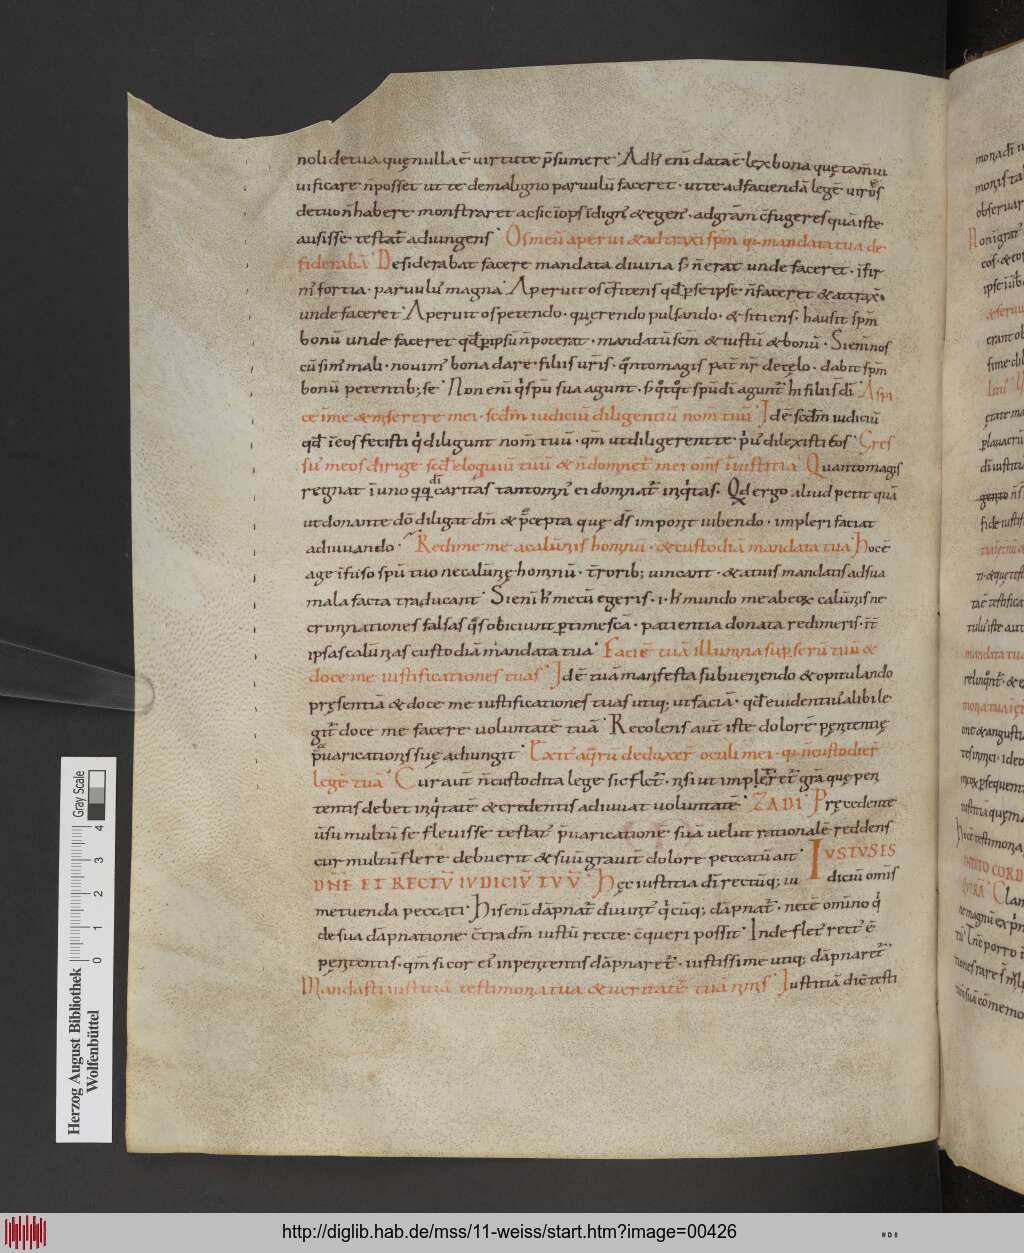 noli de tua quę nulla ē uirtute p̄sumere. Ad h̄ enī data ē lex bona quę tam̄ ui
uificare n̄ posset ut te de maligno paruulū faceret. ut te ad faciendā legē uirēs
de tuo n̄ habere monstraret ac sic īops īdignꝰ & egenꝰ. ad gr̄am c̄fugeres quā iste
ausisse testatr̄ adiungens. Os meū aperui & adtraxi sp̄m qꝛ mandata tua de
siderabā. Desiderabat facere mandata diuina s; n̄ erat unde faceret. īfir
mꝰ fortia. paruulꝰ magna. Aperuit os c̄fitens qd̄ ꝑ se ipse n̄ faceret & attrax̄
unde faceret. Aperuit os petendo. quęrendo pulsando. & sitiens. hausit sp̄m
bonū unde faceret qd̄ ꝑ ipsū n̄ poterat. mandatū sc̄m & iustū & bonū. Si enī nos
cū simꝰ mali. nouimꝰ bona dare filiis ur̄is. q̄nto magis pat̄ nr̄ de cęlo. dabit sp̄m
bonū petentib; se. Non enī qͥ sp̄u sua agunt. s; qͦtqͦt sp̄u dī aguntr̄ hi filii s̄ dī. Aspi
ce ī me & miserere mei. scd̄m iudiciū diligentiū nom̄ tuū. Idē scd̄m iudiciū
qd̄ ī eos fecisti qͥ diligunt nom̄ tuū. qm̄ ut diligerent te pͥꝰ dilexisti eos. Gres
suꝰ meos dirige scd̄ eloquiū tuū & n̄ dominet̄ mei om̄s īiustitia. Quanto magis
regnat ī uno qͦqͦ dī caritas tanto minꝰ ei dominat̄ iniqͥtas. Qd ergo aliud petit quā
ut donante dō diligat dm̄ & p̄cepta quę ds̄ imponit iubendo. impleri faciat
adiuuando. Redime me a calūniis hominū. & custodiā mandata tua. Hoc ē
age īfuso sp̄u tuo ne calūnię hominū. t̄rorib; uincant. & a tuis mandatis ad sua
mala facta traducant. Si enī h̄ metū egeris. i. h̄ mundo me ab eoꝝ calūniis ne
criminationes falsas qͣs obiciunt ꝑtimescā. patientia donata redimeris. īt̄
ipsas calūnias custodiā mandata tua. Faciē tuā illumina sup̄ seruū tuū &
doce me iustificationes tuas. Idē tuā manifesta subueniendo & opitulando
pręsentiā & doce me iustificationes tuas utiq; ut faciā. qd̄ euidentiꝰ alibi le
git̄ doce me facere uoluntatē tuā. Recolens aut̄ iste dolorē penitentię
p̄uaricationis suę adiungit. Exitꝰ aq̄rū deduxer̄ oculi mei. qꝛ n̄ custodier̄
legē tuā. Cur aut̄ n̄ custodita lege sic flet̄. nisi ut impleret̄ gr̄a quę pen
tentis debet iniqͥtatē & credentis adiuuat uoluntatē. ZADI. Pręcedente
ūsu multū se fleuisse testatꝰ p̄uaricationē suā uelut rationalē reddens
cur multū flere debuerit & suū grauit̄ dolore peccatū ait. IUSTUS ES
DN̄E ET RECTŪ IUDICIŪ TUŪ. Hęc iustitia dī rectūq; iu
diciū om̄is
metuenda peccati. His enī dāpnat̄ diuinitꝰ qͥcūq; dāpnat̄. nec ē om̄ino qͥ
de sua dāpnatione c̄tra dm̄ iustū recte c̄queri possit. Inde fletꝰ rectꝰ ē
penitentis. qm̄ si cor eiꝰ inpenitentis dāpnaret̄. iustissime utiq; dāpnaret̄.
Mandasti iustitiā testimonia tua & ueritatē tuā nimis. Iustitiā dic̄ testi
Herzog August Bibliothek
Wolfenbüttel
0 1 2 3 4
Gray Scale
http://diglib.hab.de/mss/11-weiss/start.htm?image=00426